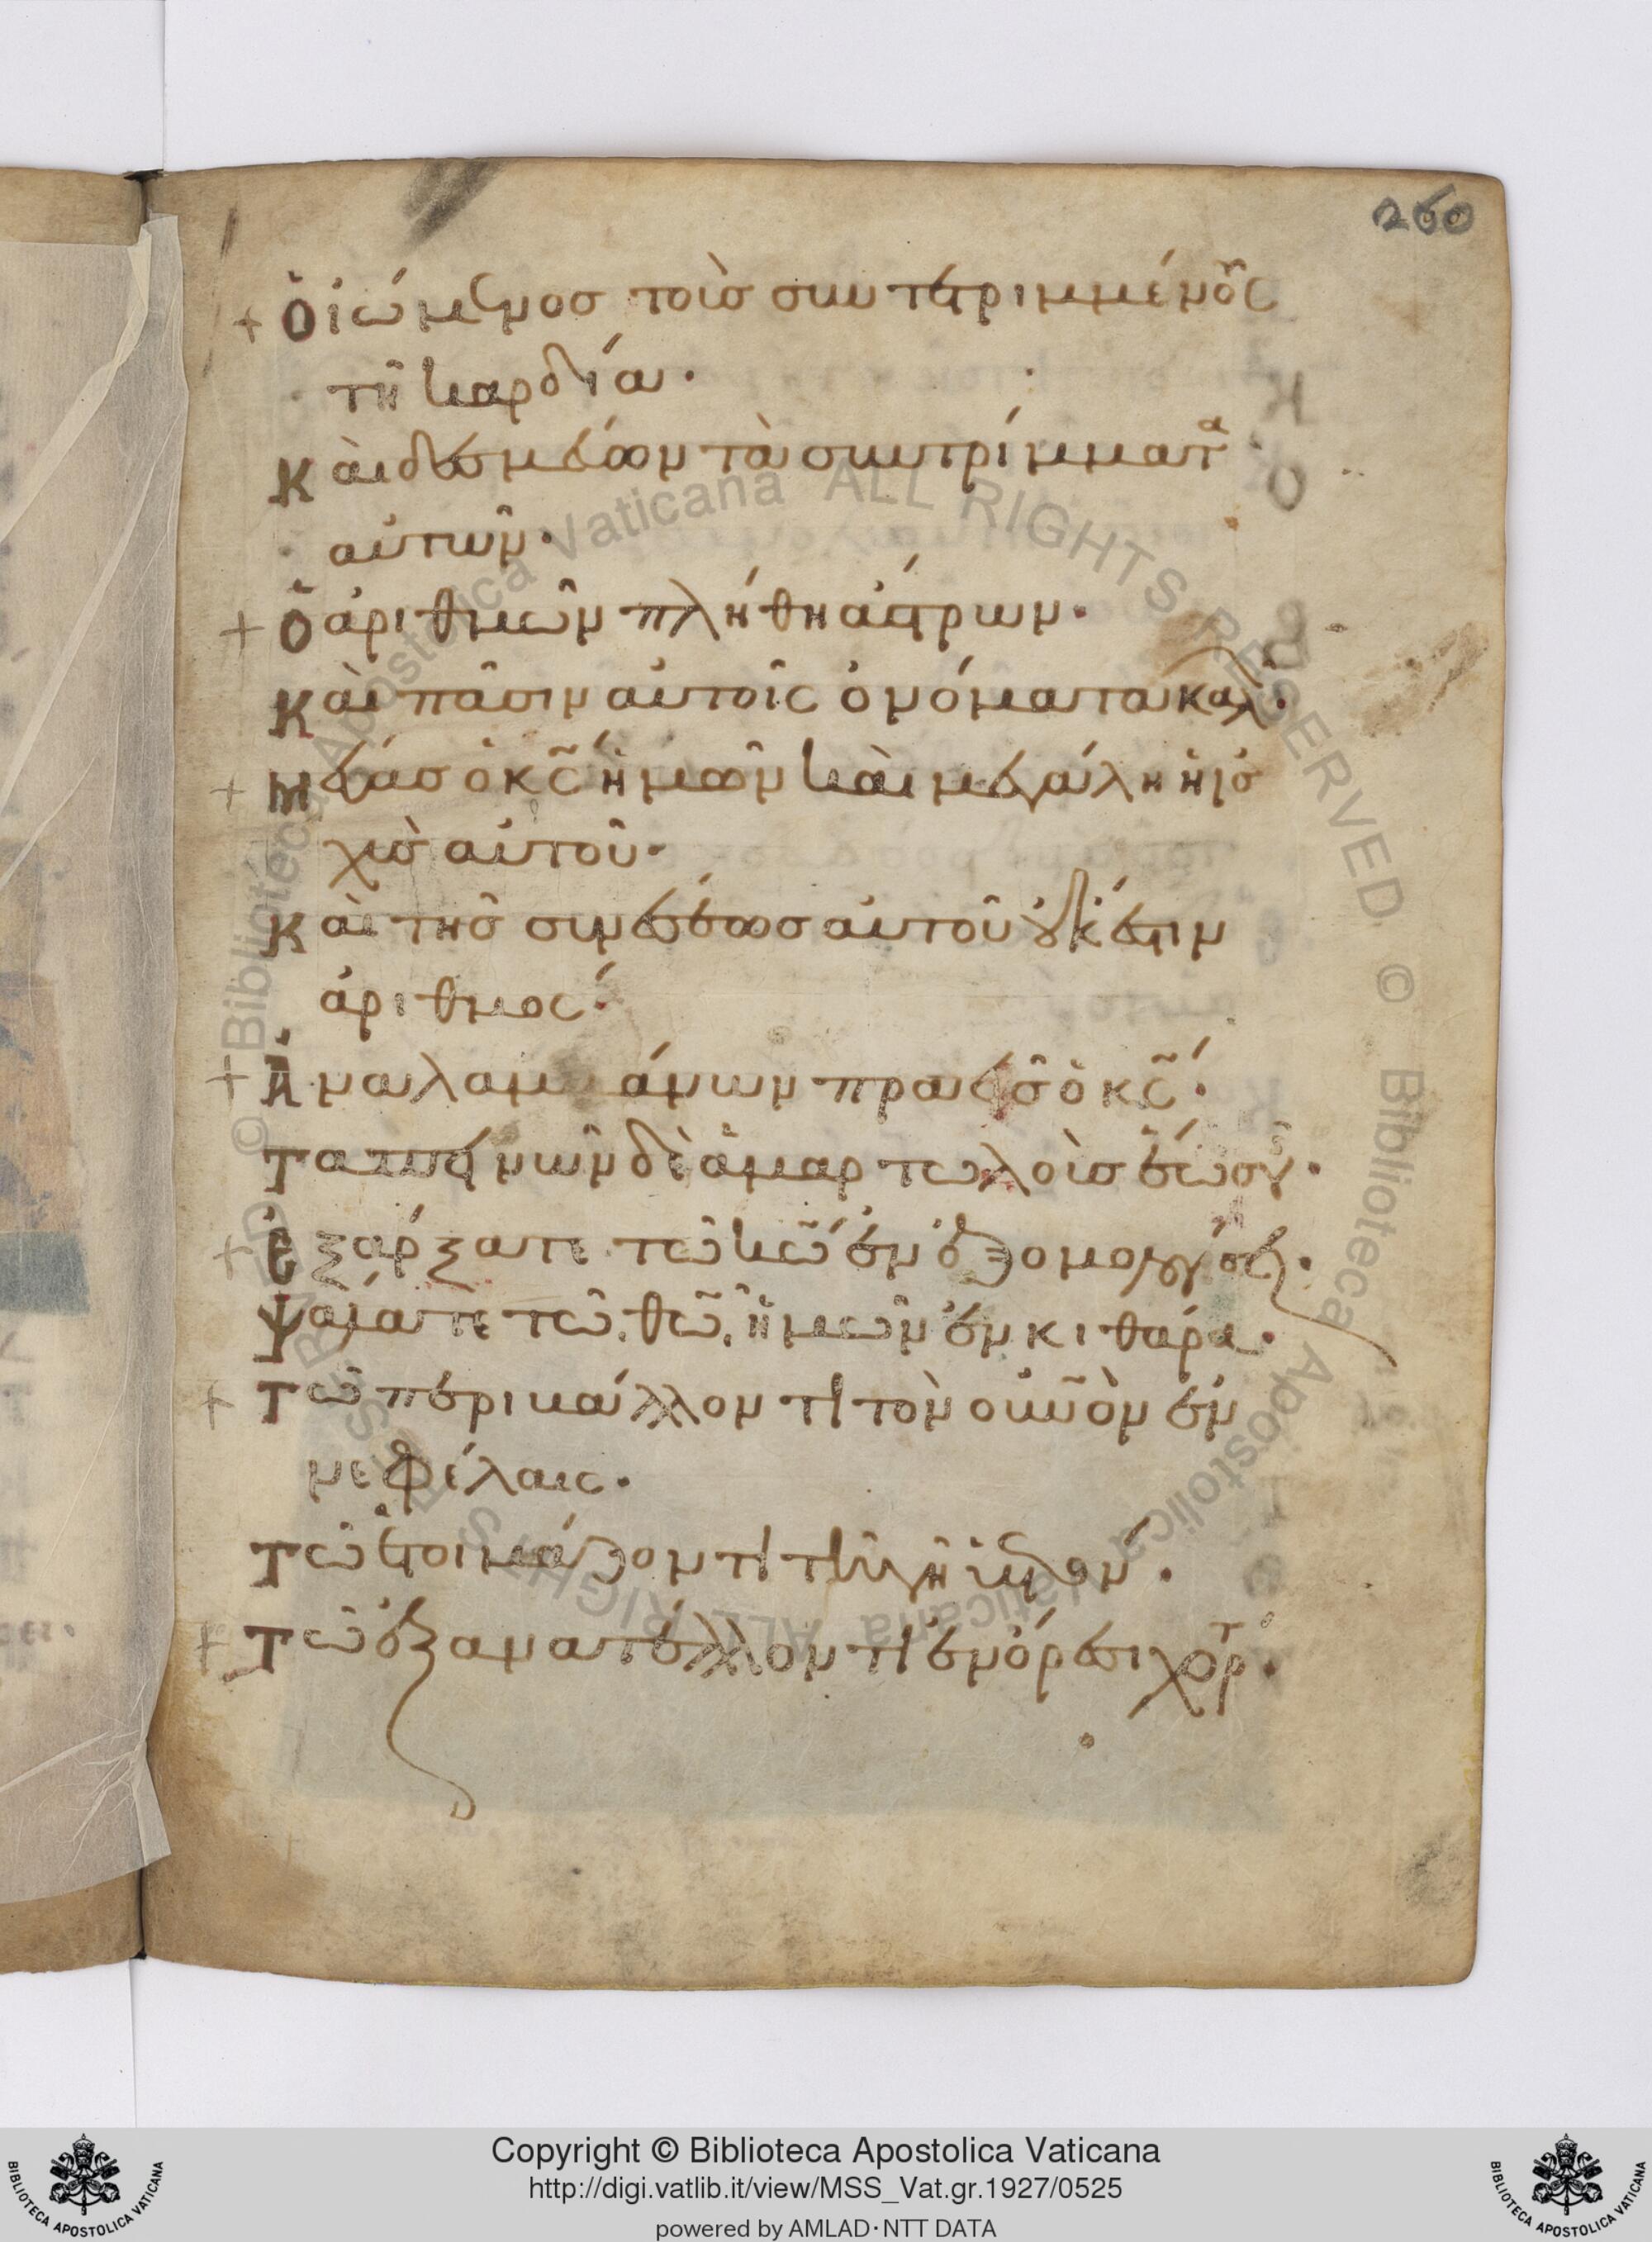 260
+ Ὁ ἰώμενος τοὺς συντετριμμένους
τῆ καρδία·
Καὶ δεσμεύων τὰ συντρίμματα
αὐτῶν·
+ Ὁ ἀριθμῶν πλήθη ἄστρων·
Καὶ πᾶσιν αὐτοῖς ὀνόματα καλῶν·
+ Μέγας ὁ κς ἡμῶν καὶ μεγάλη ἡ ἰσ
χὺς αὐτοῦ·
Καὶ τῆς συνέσεως αὐτοῦ οὐκ ἔστιν
ἀριθμός·
+ Ἀναλαμβάνων πραεῖς ὁ κς·
Ταπεινῶν δὲ ἁμαρτωλοὺς ἕως γῆς·
+ Ἐξάρξατε τῶ κω ἐν ἐξομολογήσει·
Ψάλατε τῶ θω ἡμῶν ἐν κιθάρα·
+ Τῶ περιβάλλοντι τὸν οὐνον ἐν
νεφέλαις·
Τῶ ἑτοιμάζοντι τῆ γῆ ὑετόν·
+ Τῶ ἐξανατέλλοντι ἐν ὄρεσι χόρτον·
Copyright © Biblioteca Apostolica Vaticana
http://digi.vatlib.it/view/MSS_Vat.gr.1927/0525
powered by AMLAD·NTT DATA
BIBLIOTECA APOSTOLICA VATICANA
BIBLIOTECA APOSTOLICA VATICANA
© Biblioteca Apostolica Vaticana ALL RIGHTS RESERVED © Biblioteca Apostolica Vaticana ALL RIGHTS RESERVED